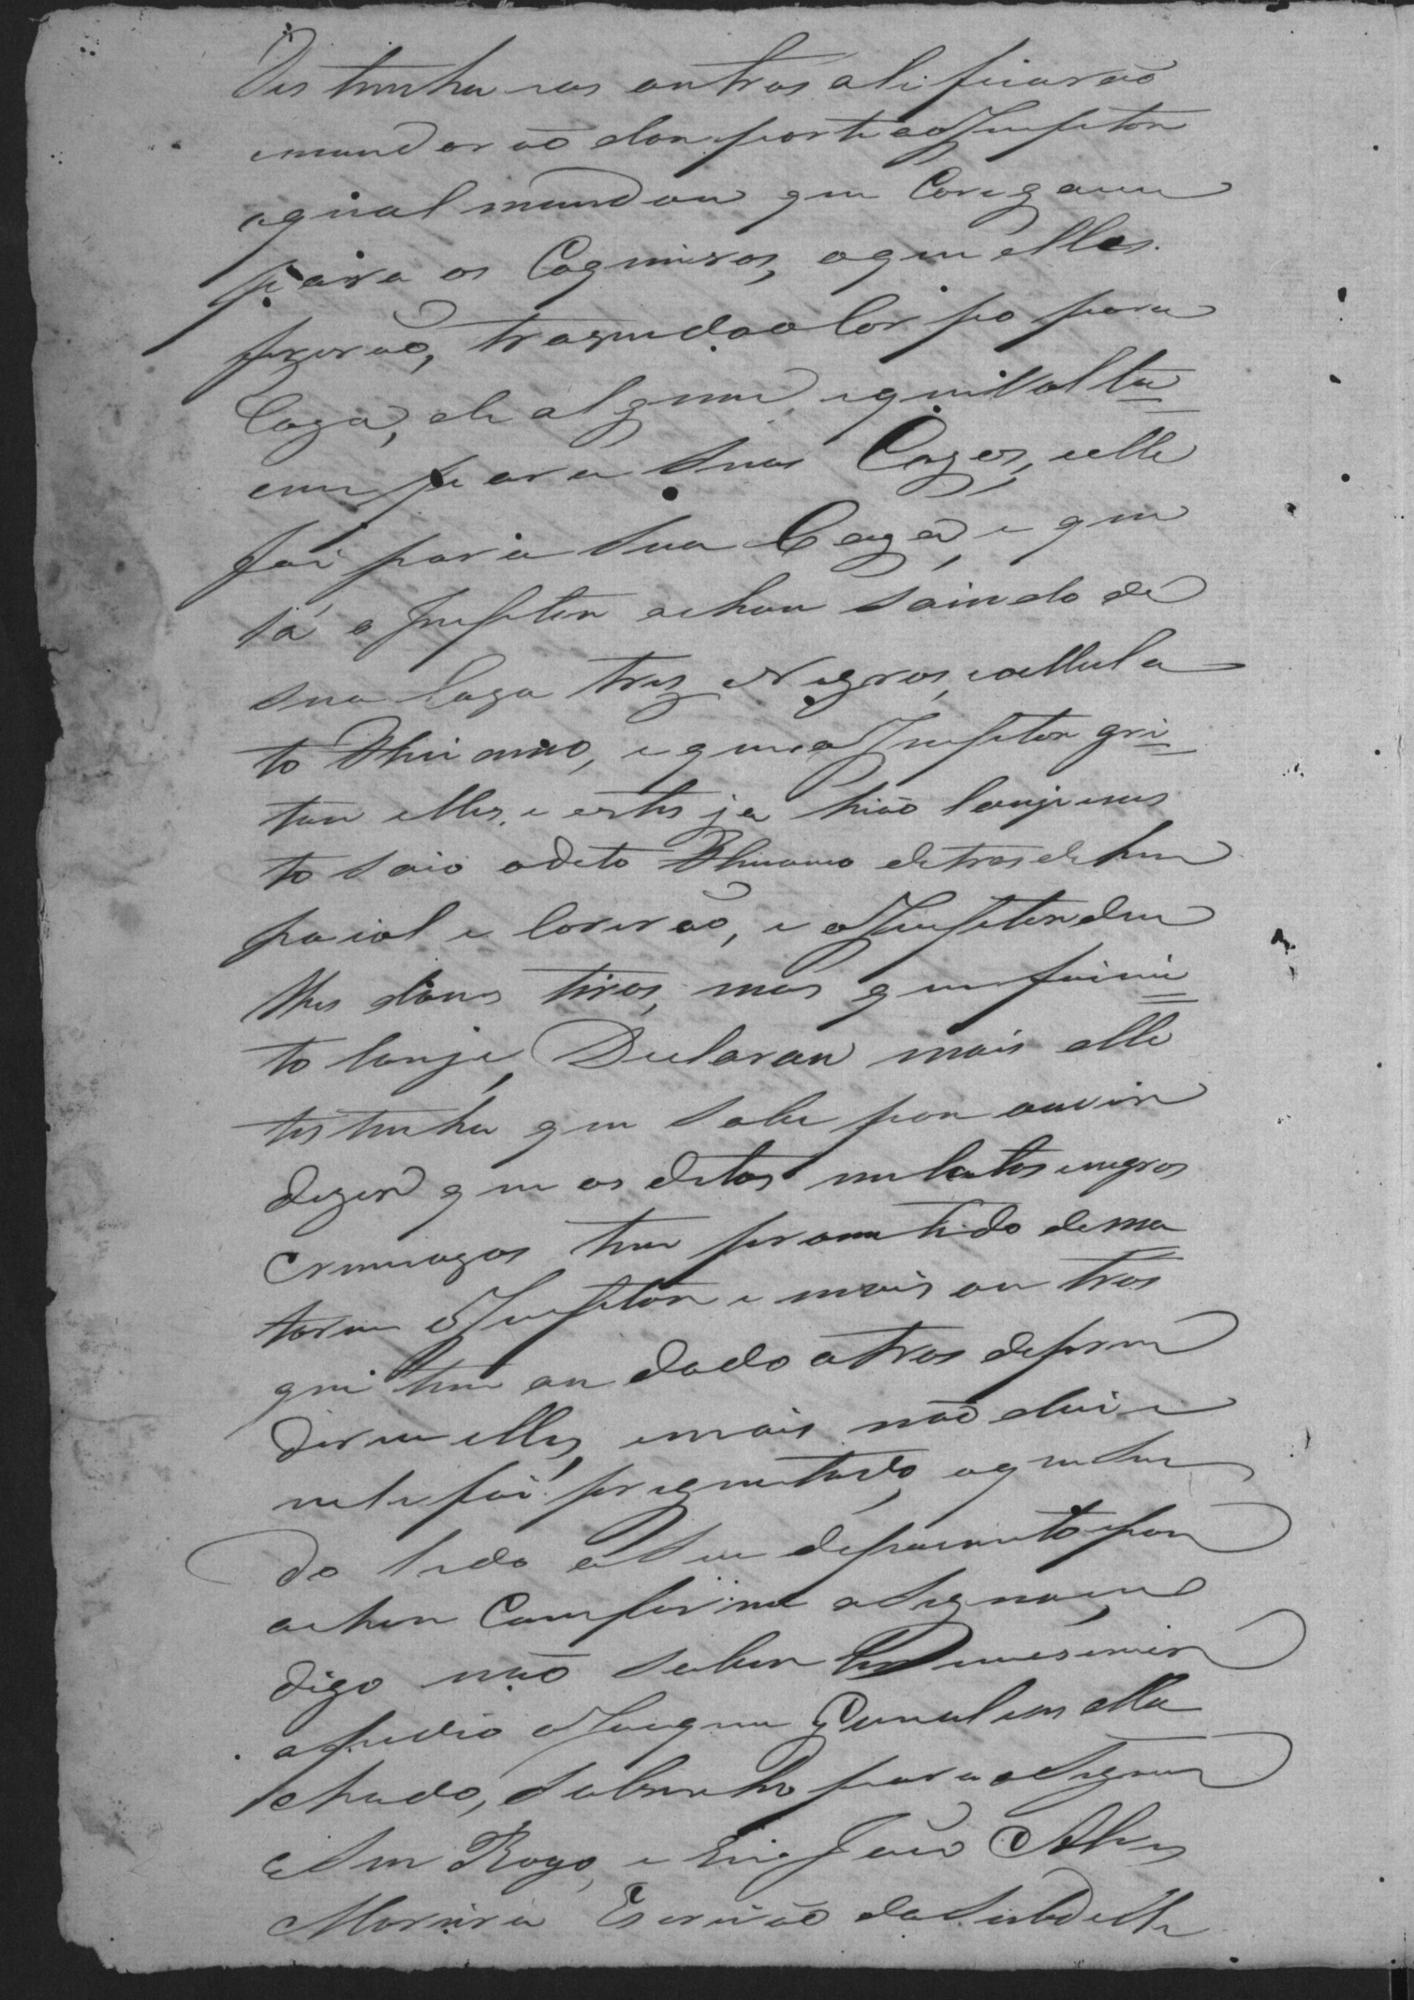 Testunha eos outros ali ficarão
emandarão dar parte ao Inspetor
oqual mandou que Coregaun
para os Caqueiros, oque elles
fizerão, trazendo o Corpo para
Caza, de alguem, eque voltar=
em para suas Cazas, e elle
foi para sua Caza, e que
lá o Inspetor achou saindo de
sua Caza trez Negros, e o Mula
to e que o Inspetor gri=
tou elles, e estes ja hião lonje nes
to saio o dito detras de hum
paiol e Corerão, e o Inspetor deu
lhes dous tiros, mas que foi mui=
to lonje, Declarou mais elle
testunha que sabe por ouvir
dizer que os ditos mulatos e negros
criminozos tem prometido de ma
tarem o Inspetor e mais outros
que tem andado atras de pren
derem elles, e mais não dice
nele foi preguntado, oque sen
do lido o seu depoimento por
achar Comforme asignou
digo não saber ler nem escrever
a pedio a Joaquim Gonçalves Ma
chado, Sobrinho para asignar
a seu Rogo, e Eu João Alves
Moreira Escrivão da Subdelle